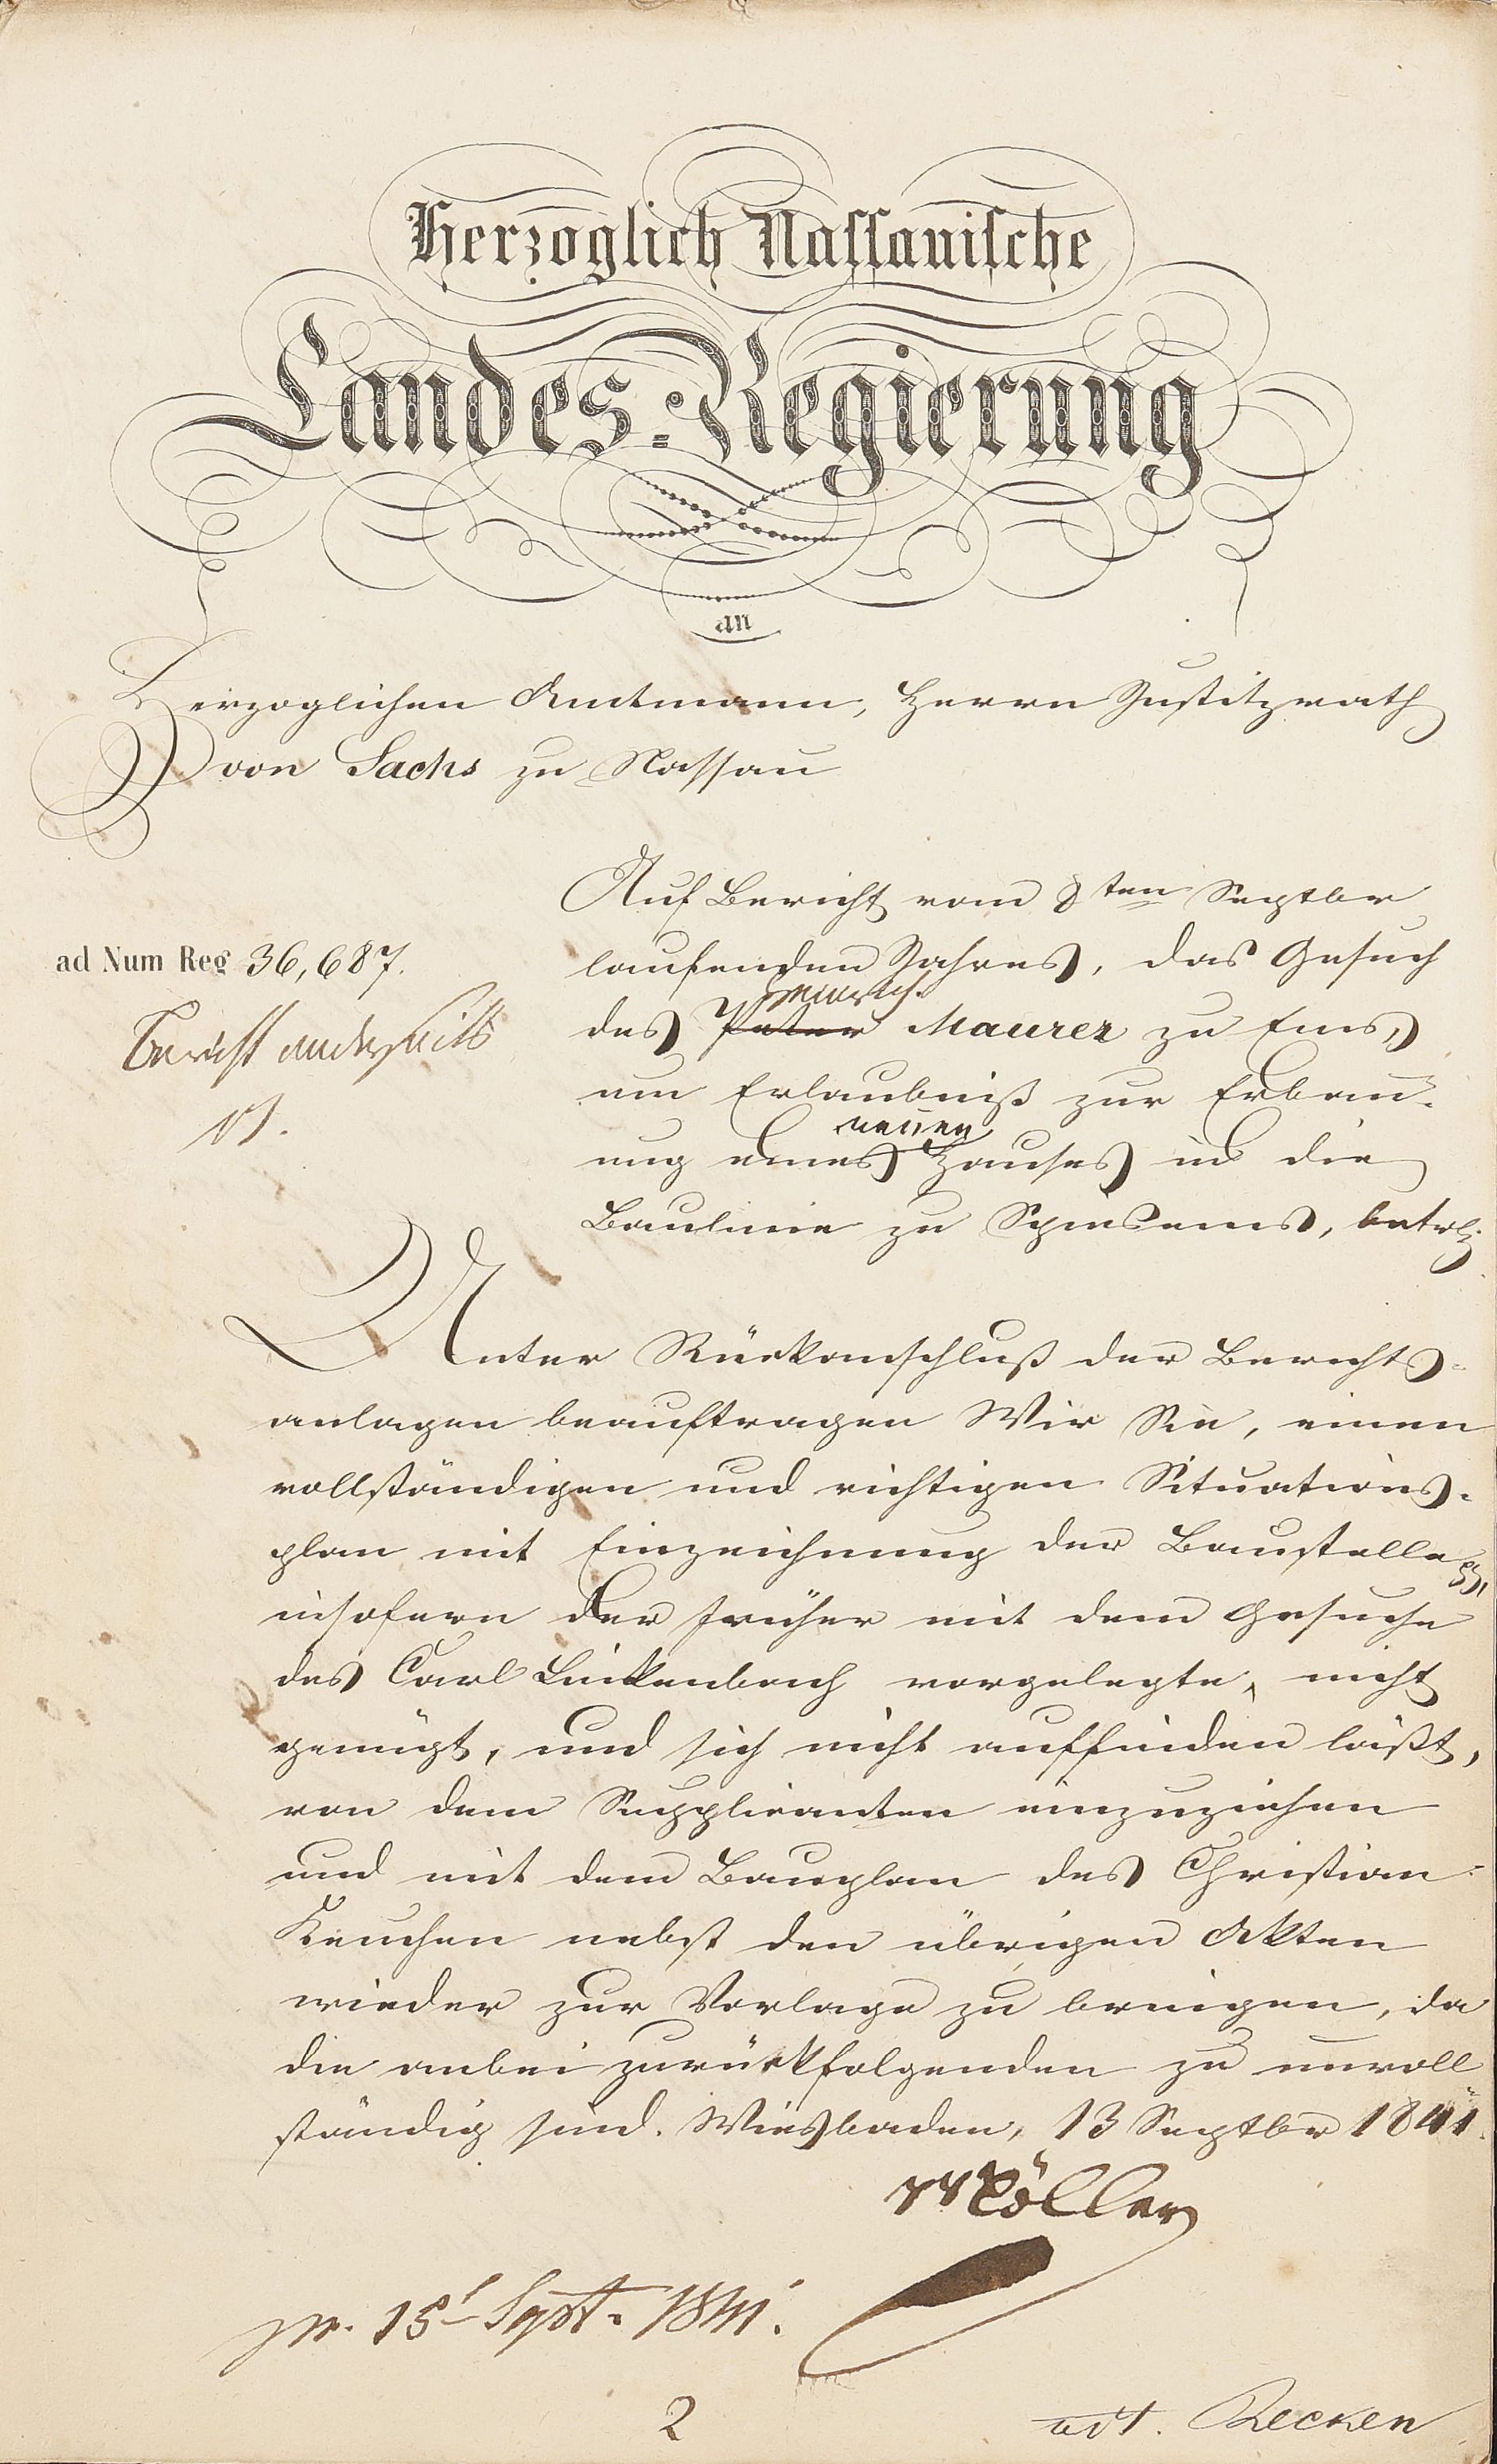 Herzoglich Nassauische
Landes-Regierung
an
Herzoglichen Amtmann, Herrn Justitzrath
von Sachs zu Nassau
Auf Bericht vom 8ten Septbr
ad Num Reg 36,687.
laufenden Jahres, das Gesuch
Heinrich
des Peter Maurer zu Ems,
Bericht anderseits
um Erlaubniß zur Erbau-
neuen
ung eines Hauses in die
Baulinie zu Spiesems, betr.
Unter Rückanschluß der Berichts-
anlagen beauftragen Wir Sie, einen
vollständigen und richtigen Situations-
plan mit Einzeichnung der Baustelle
insofern der früher mit dem Gesuche
des Carl Linkenbach vorgelegte, nicht
genügt, und sich nicht auffinden läßt,
von dem Supplicanten einzuziehen
und mit dem Bauplan des Christian
Keuchen nebst den übrigen Akten
wieder zur Vorlage zu bringen, da
die anbei zurückfolgenden zu unvoll
ständig sind. Wiesbaden, 13 Septbr 1841.
Möller
pr. 15t Sept. 1841.
2
vdt. Recken